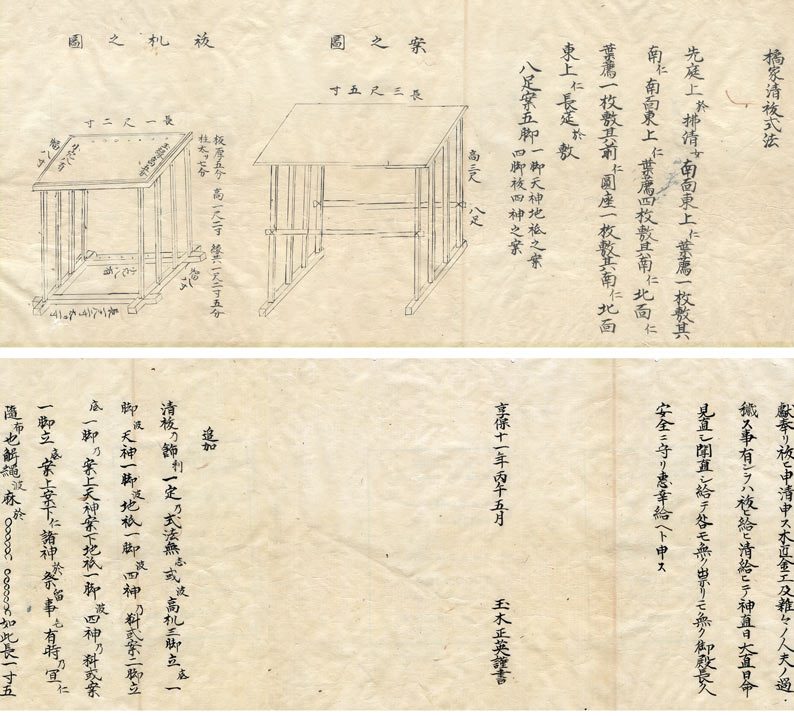 橘家清祓式法
先庭上於拂清女南面東上仁葉薦一枚敷其
南仁南面東上仁葉薦四枚敷其南仁北面仁
葉薦一枚敷其前仁圓座一枚敷其南仁北面
東上仁長莚於敷
八足案五脚 一脚天神地祗之案
四脚祓四神之案
案之圖
長三尺五寸
高三尺
八足
祓札之圖
長一尺二寸
板厚五分
柱太サ七分
高一尺二寸
献奉リ祓ヒ申清申ス木匠金工及雜々ノ人夫ノ過
穢ス事有ンヲハ祓ヒ給ヒ清給ヒテ神直日大直日命
見直シ聞直シ給テ咎モ無ク祟リモ無ク御殿長久
安全ニ守リ惠幸給ヘト申ス
享保十一年丙午五月
玉木正英謹書
追加
清祓乃餝利一定乃式法無志或波高机三脚立底一
脚波天神一脚波地祗一脚波四神乃料或案二脚立
底一脚乃案上天神案下地祗一脚波四神乃料或案
一脚立底案上案下仁諸神於祭留事毛有時乃宜仁
隨布也解繩波麻於
如此長一寸五